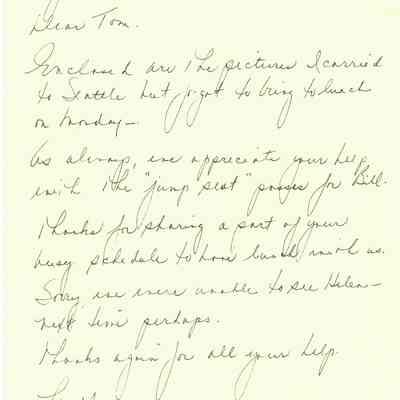 Dear Tom.
Enclosed are the pictures I carried
to Seattle but forgot to bring to lunch
on Monday—
As always, we appreciate your help
with the "jump seat" passes for Bill.
Thanks for sharing a part of your
busy schedule to have lunch with us.
Sorry we were unable to see Helen—
next time perhaps.
Thanks again for all your help.